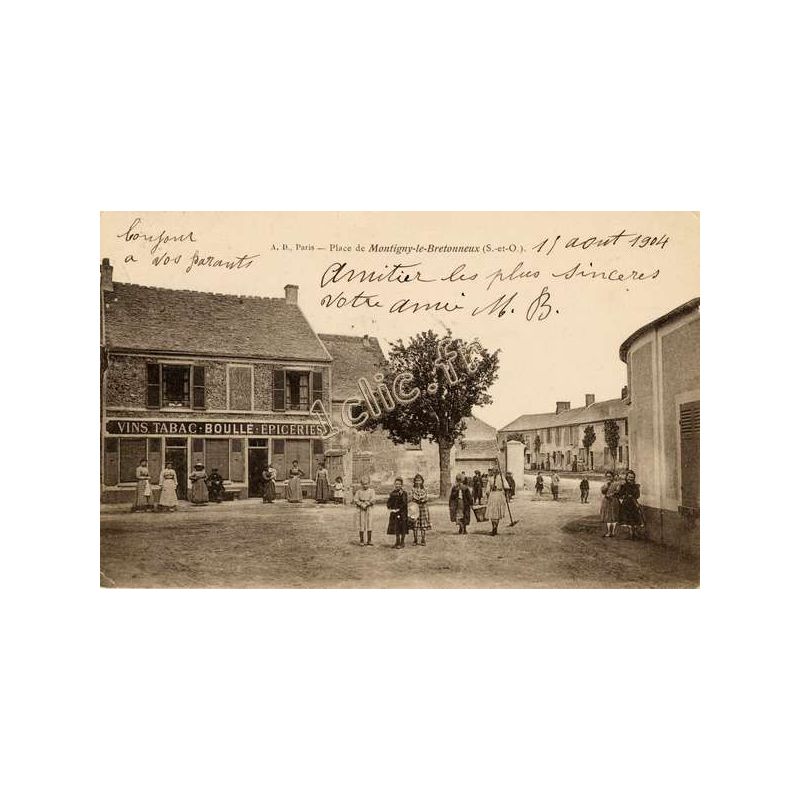 bonjour
a vos parants
A. B., Paris — Place de Montigny-le-Bretonneux (S.-et-O.).
15 aout 1904
Amitier les plus sinceres
Votre amie M. B.
1clic.fr
VINS TABAC · BOULLE · EPICERIES